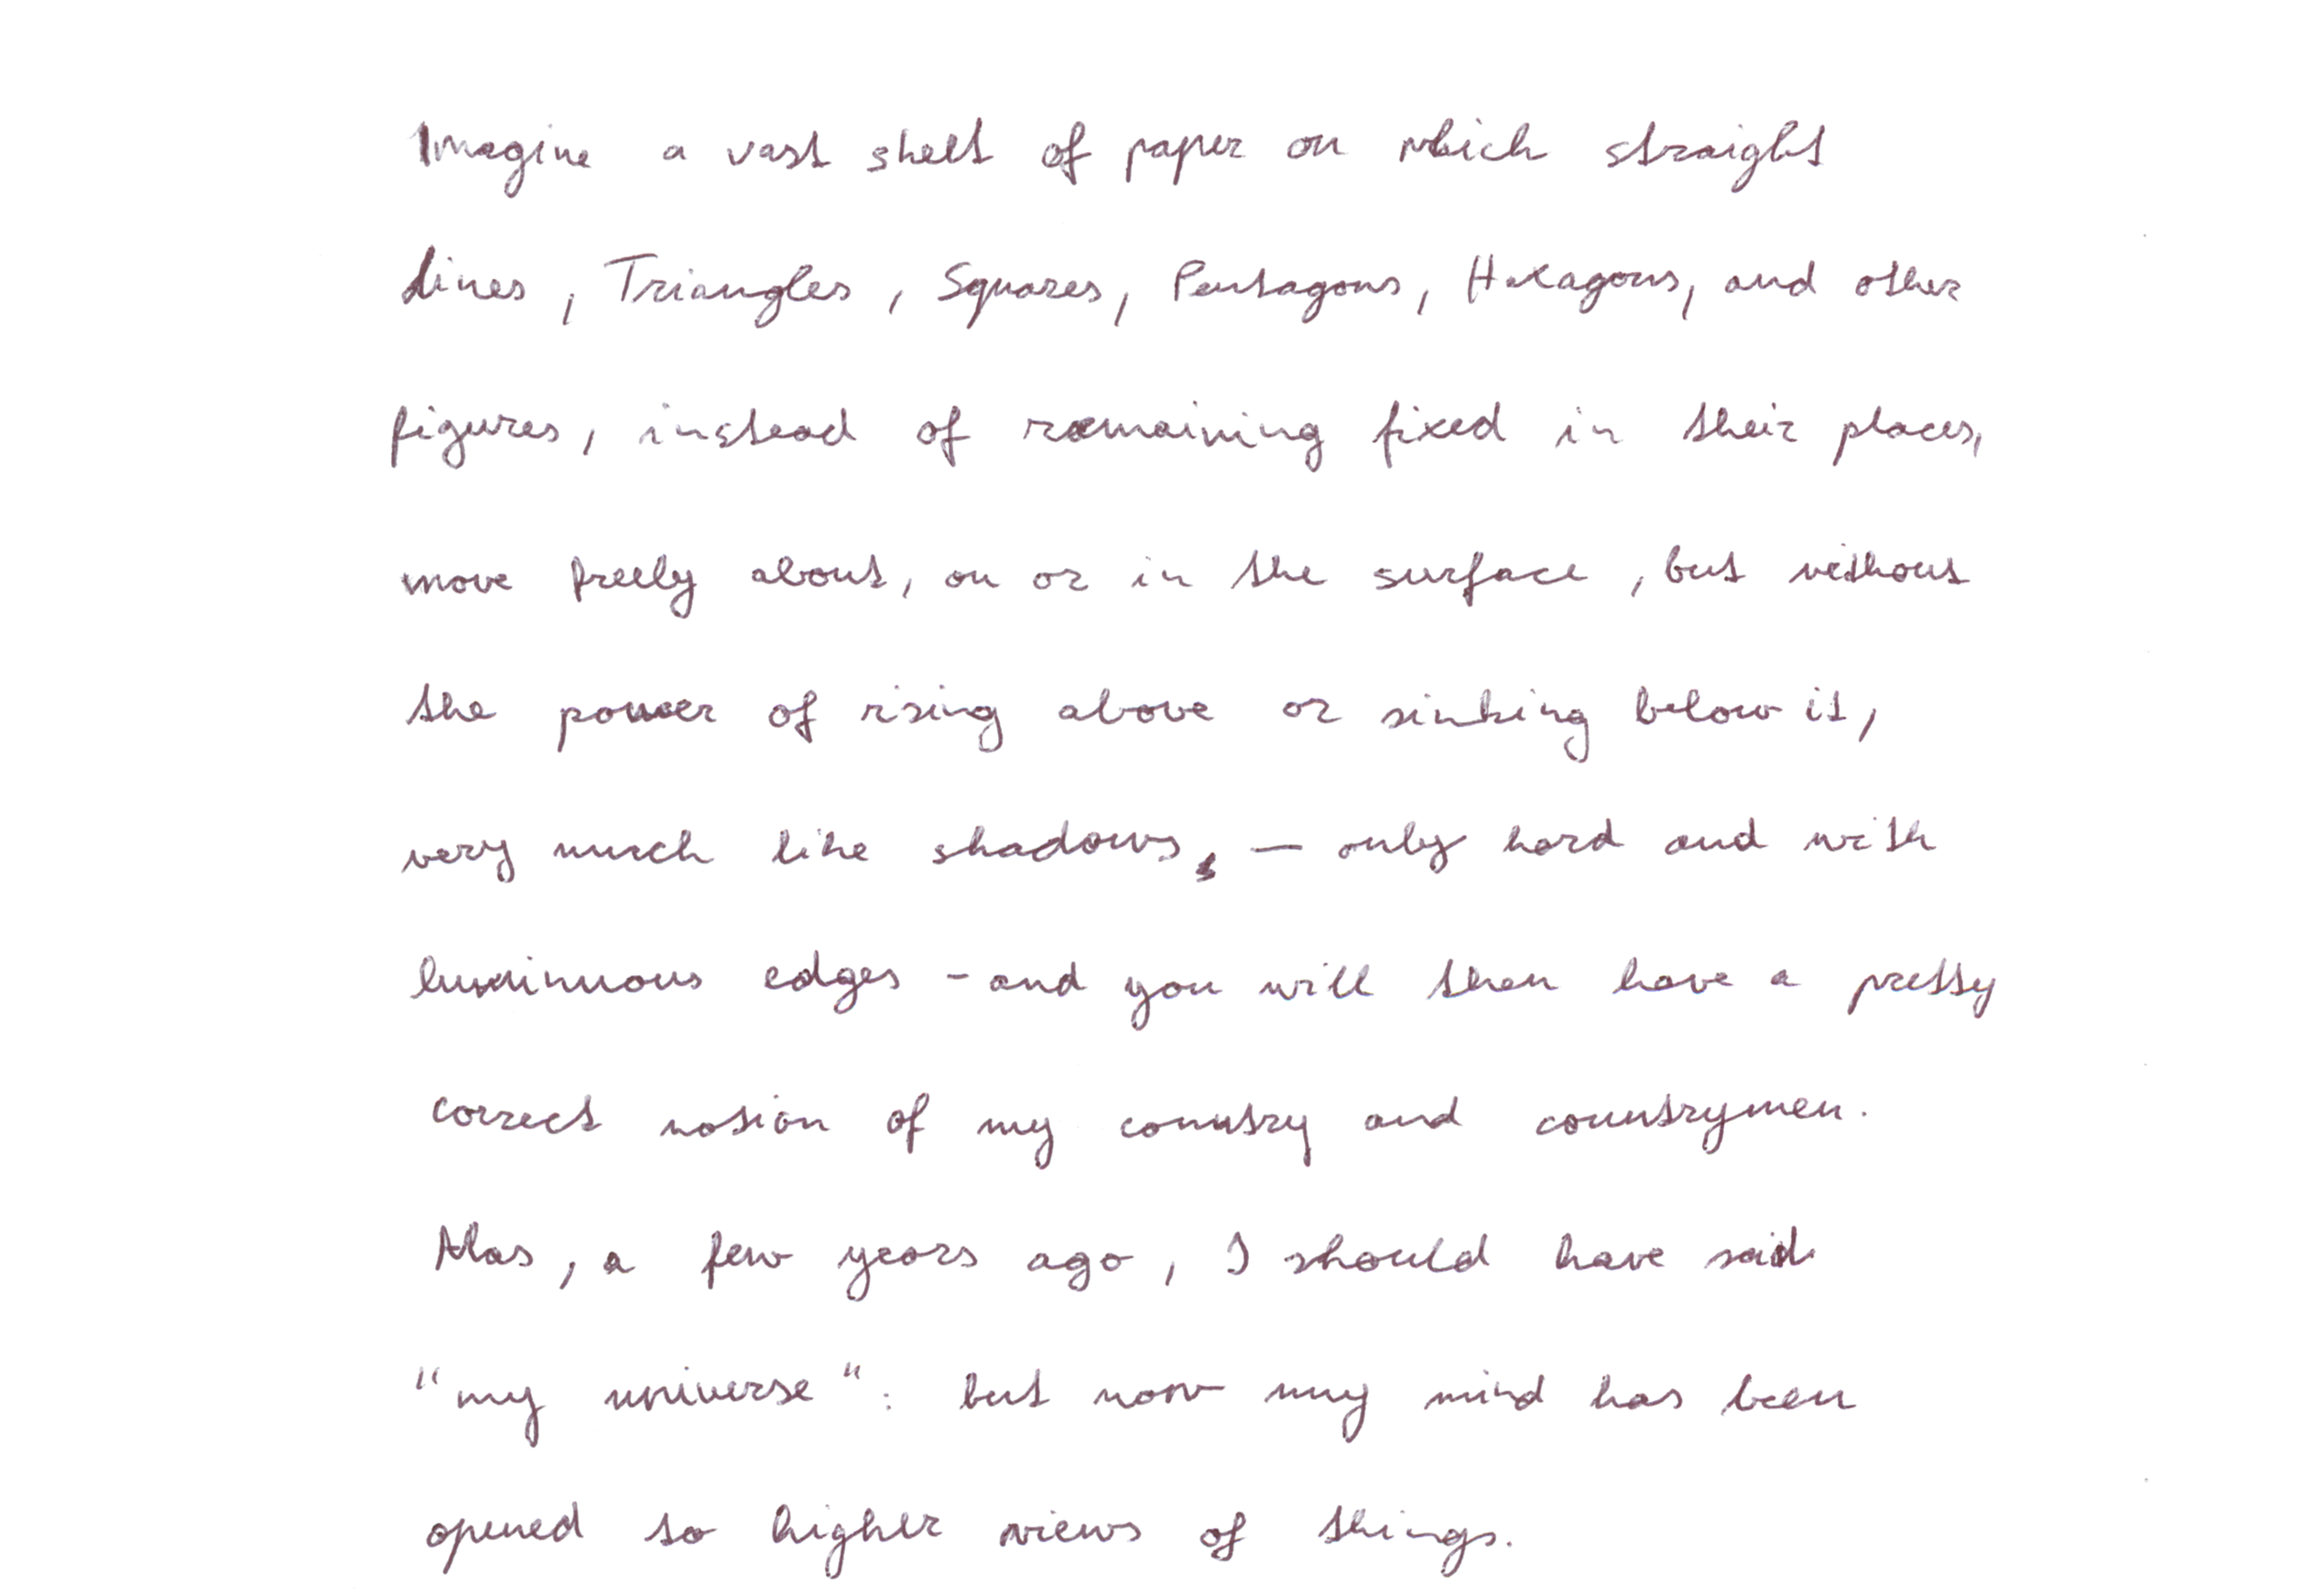 Imagine a vast sheet of paper on which straight
Lines, Triangles, Squares, Pentagons, Hexagons, and other
figures, instead of remaining fixed in their places,
move freely about, on or in the surface, but without
the power of rising above or sinking below it,
very much like shadows, — only hard and with
luminuous edges - and you will then have a pretty
correct notion of my country and countrymen.
Alas, a few years ago, I should have said
"my universe": but now my mind has been
opened to higher views of things.